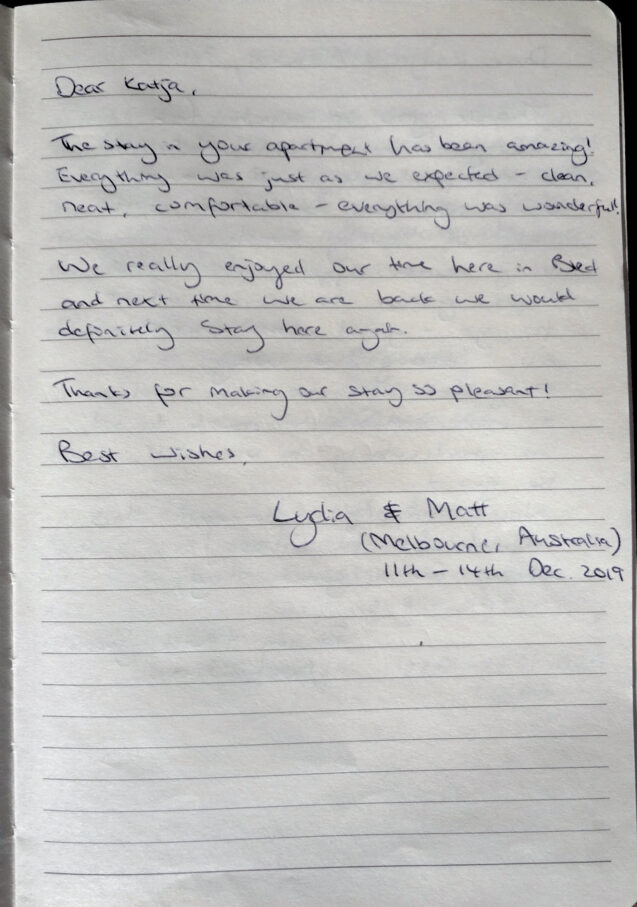 Dear Katja,
The stay in your apartment has been amazing!
Everything was just as we expected - clean,
neat, comfortable - everything was wonderful!
We really enjoyed our time here in Bled
and next time we are back we would
definitely stay here again.
Thanks for making our stay so pleasant!
Best wishes,
Lydia & Matt
(Melbourne, Australia)
11th - 14th Dec. 2019